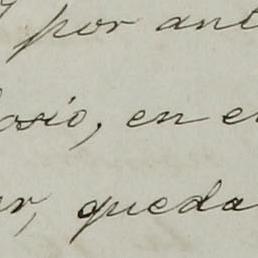 por ant
osio, en e
ar, queda